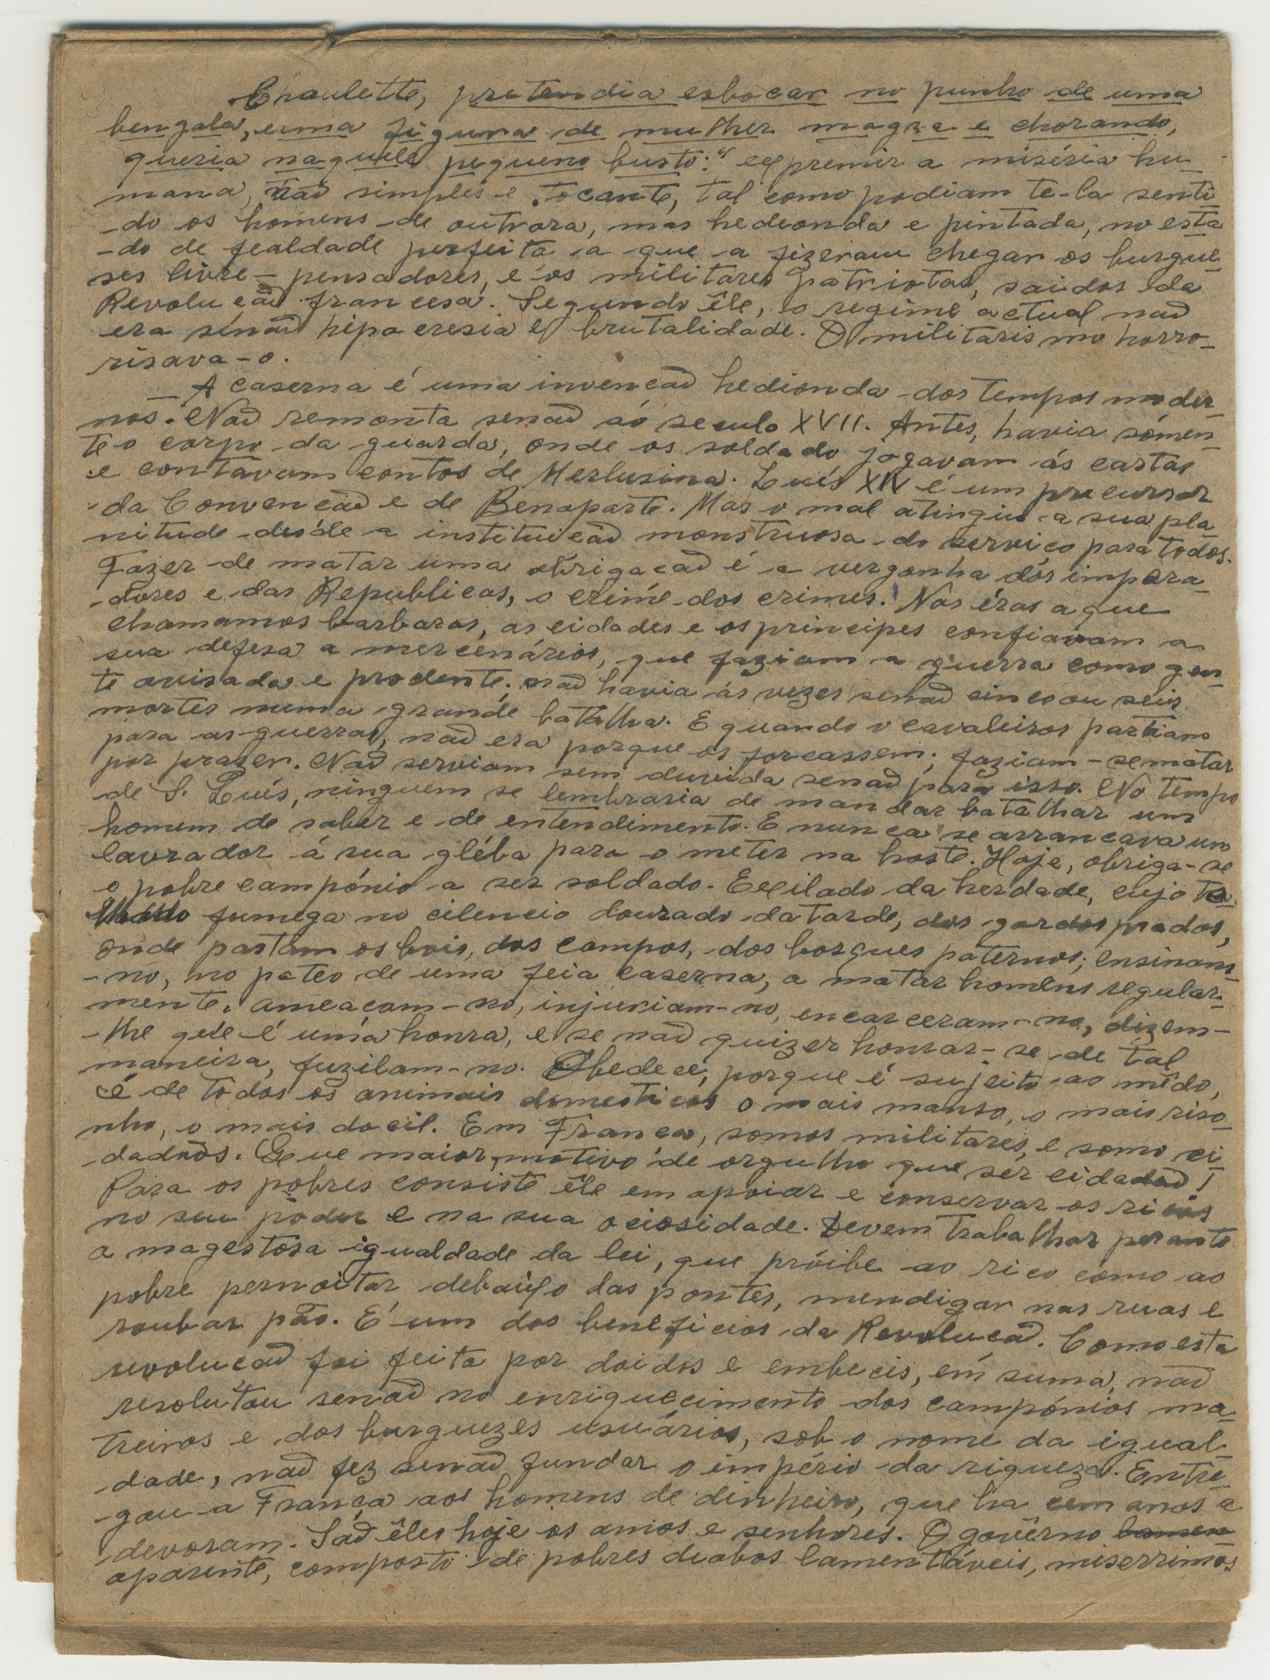 Choulette, pretendia esboçar no punho de uma
bengala, uma figura de mulher magra e chorando,
queria naquele pequeno busto: "exprimir a miséria hu-
mana, não simples e tocante, tal como podiam te-la senti-
-do os homens de outrora, mas hedionda e pintada, no esta
-do de fealdade perfeita a que a fizeram chegar os burgue-
ses livre-pensadores, e os militares patriotas, saidos da
Revolução francesa. Segundo êle, o regime actual não
era sinão hipocresia e brutalidade. O militarismo horro-
risava-o.
— A caserna é uma invenção hedionda dos tempos moder-
nos. Não remonta senão só seculo XVII. Antes, havia sómen-
te o corpo da guarda, onde os soldado jogavam ás cartas
e contavam contos de Merlusina. Luís XIV é um precursor
da Convenção e de Benaparte. Mas o mal atingiu a sua pla
nitude desde a instituição monstruosa do serviço para todos.
Fazer de matar uma obrigação é a vergonha dos impera-
-dores e das Republicas, o crime dos crimes. Nas éras a que
chamamos barbaras, as cidades e os principes confiavam a
sua defesa a mercenários, que faziam a guerra como gen-
te avisada e prodente; não havia ás vezes senão sinco ou seis
mortes numa grande batalha. E quando o cavaleiros partiam
para as guerras, não era porque os forcassem; faziam-se matar
por prazer. Não serviam sem duvida senão para isso. No tempo
de S. Luís, ninguem se lembraria de mandar batalhar um
homem de saber e de entendimento. E nunca se arrancava um
lavrador á sua gléba para o meter na hoste. Hoje, obriga-se
o pobre campónio a ser soldado. Exilado da herdade, cujo te
fumega no cilencio dourado da tarde, dos gordos prados,
onde pastam os bois, dos campos, dos bosques paternos; ensinam
-no, no pateo de uma feia caserna, a matar homens regular-
mente. ameaçam-no, injuriam-no, encarceram-no, dizem-
-lhe que é uma honra, e se não quizer honrar-se de tal
maneira, fuzilam-no. Obedece, porque é sujeito ao mêdo,
é de todos os animais domesticos o mais manso, o mais riso-
nho, o mais docil. Em França, somos militares, e somo ci
dadãos. Que maior motivo de orgulho que ser cidadão!
Para os pobres consiste êle em apoiar e conservar os ricos
no seu poder e na sua ociosidade. Devem trabalhar perante
a magestosa igualdade da lei, que próibe ao rico como ao
pobre pernoitar debaixo das pontes, mendigar nas ruas e
roubar pão. É um dos beneficios da Revolução. Como esta
revolução foi feita por doidos e embecis, em suma, não
resolutou senão no enriquecimento dos campónios ma-
treiros e dos burguezes usuários, sob o nome da igual-
dade, não fez senão fundar o império da riqueza. Entre-
gou a França aos homens de dinheiro, que ha cem anos a
devoram. São êles hoje os amos e senhores. O govêrno
aparente, composto de pobres diabos lamentáveis, miserrimos